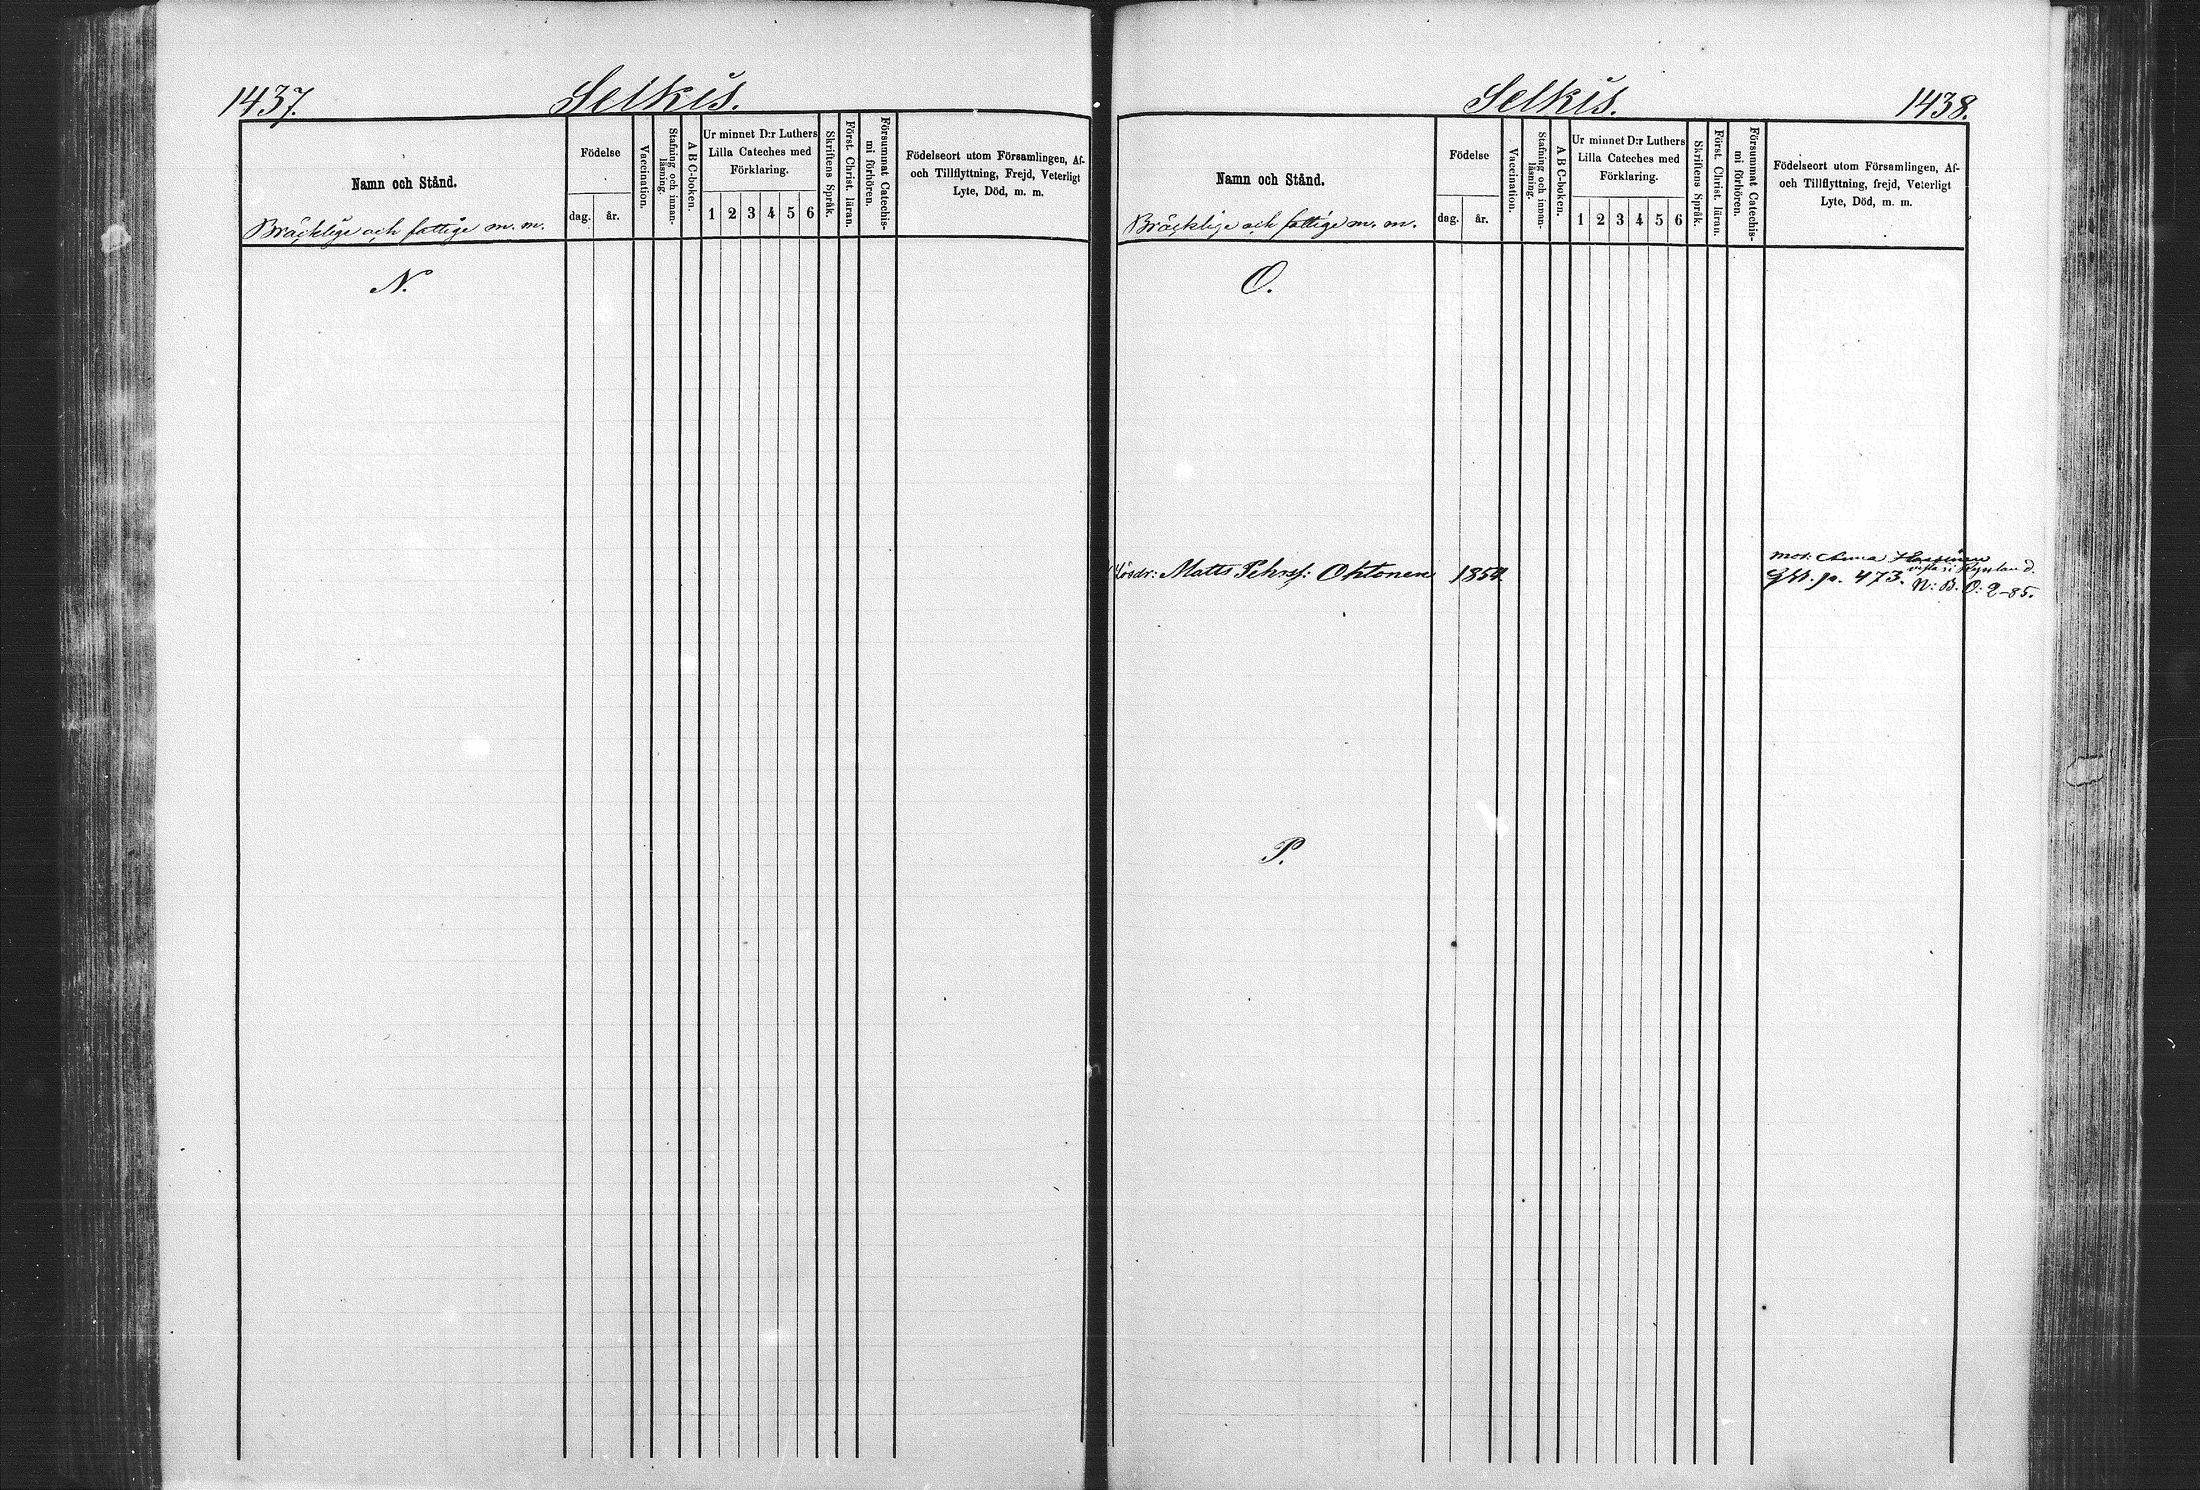 1437.
Selkis.
Namn och Stånd.
Bräcklige och fattige m. m.
Födelse
dag.
år.
Vaccination.
Stafning och innan-
läsning.
A B C-boken.
Ur minnet D:r Luthers
Lilla Cateches med
Förklaring.
1 2 3 4 5 6
Skriftens Språk.
Först. Christ. läran.
Försummat Catechis-
mi förhören.
Födelseort utom Församlingen, Af-
och Tillflyttning, Frejd, Veterligt
Lyte, Död, m. m.
N.
Selkis.
1438.
Namn och Stånd.
Bräcklige och fattige m. m.
Födelse
dag.
år.
Vaccination.
Stafning och innan-
läsning.
A B C-boken.
Ur minnet D:r Luthers
Lilla Cateches med
Förklaring.
1 2 3 4 5 6
Skriftens Språk.
Först. Christ. läran.
Försummat Catechis-
mi förhören.
Födelseort utom Församlingen, Af-
och Tillflyttning, frejd, Veterligt
Lyte, Död, m. m.
O.
Lösdr: Matts Pehrss: Oktonen 1854.
mot: Anna
473.
N: B. O: 2-85.
P.